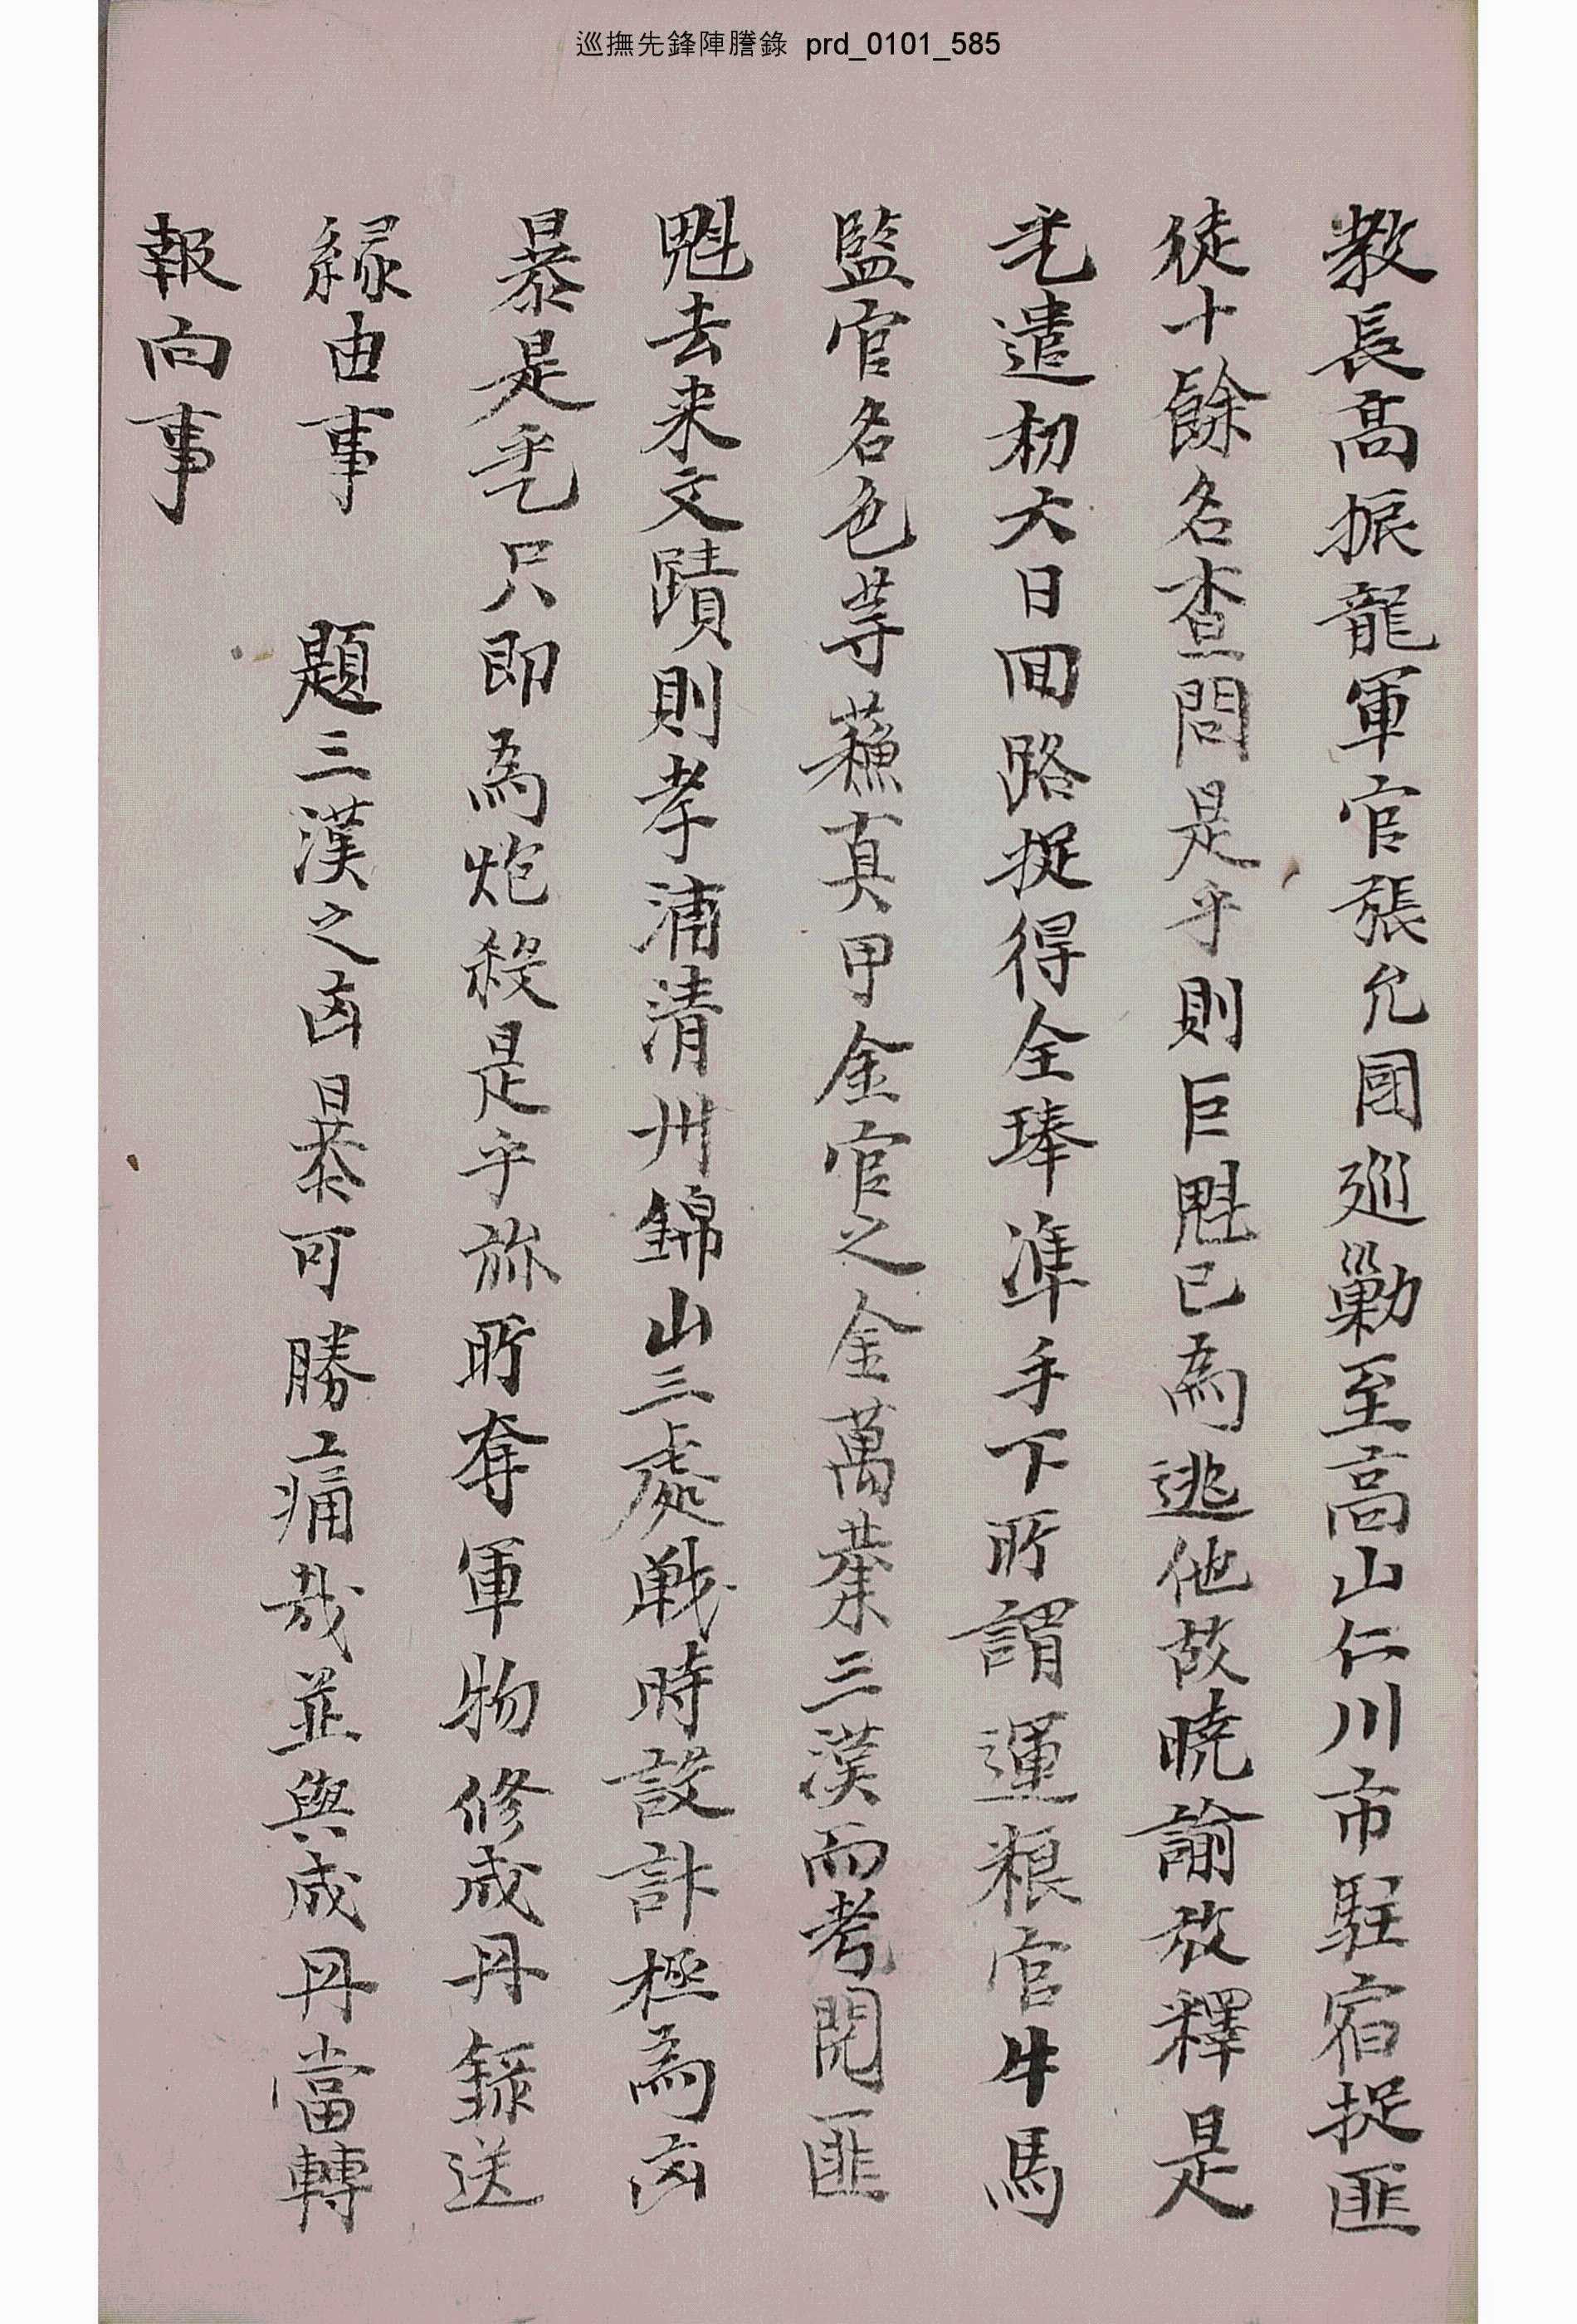 巡撫先鋒陣謄錄 prd_0101_585
教長高振龍軍官張允國巡勦至高山仁川市駐宿捉匪
徒十餘名查問是乎則巨魁已爲逃他故曉諭放釋是
乎遣初六日回路捉得全琫準手下所謂運粮官牛馬
監官名色等蘓真甲金官之金萬葉三漢而考閱匪
魁去来文蹟則孝浦清州錦山三處戦時設計極爲凶
暴是乎只即爲炮殺是乎旀所奪軍物修成丹錄送
緣由事 題三漢之凶暴可勝痛哉並與成丹當轉
報向事